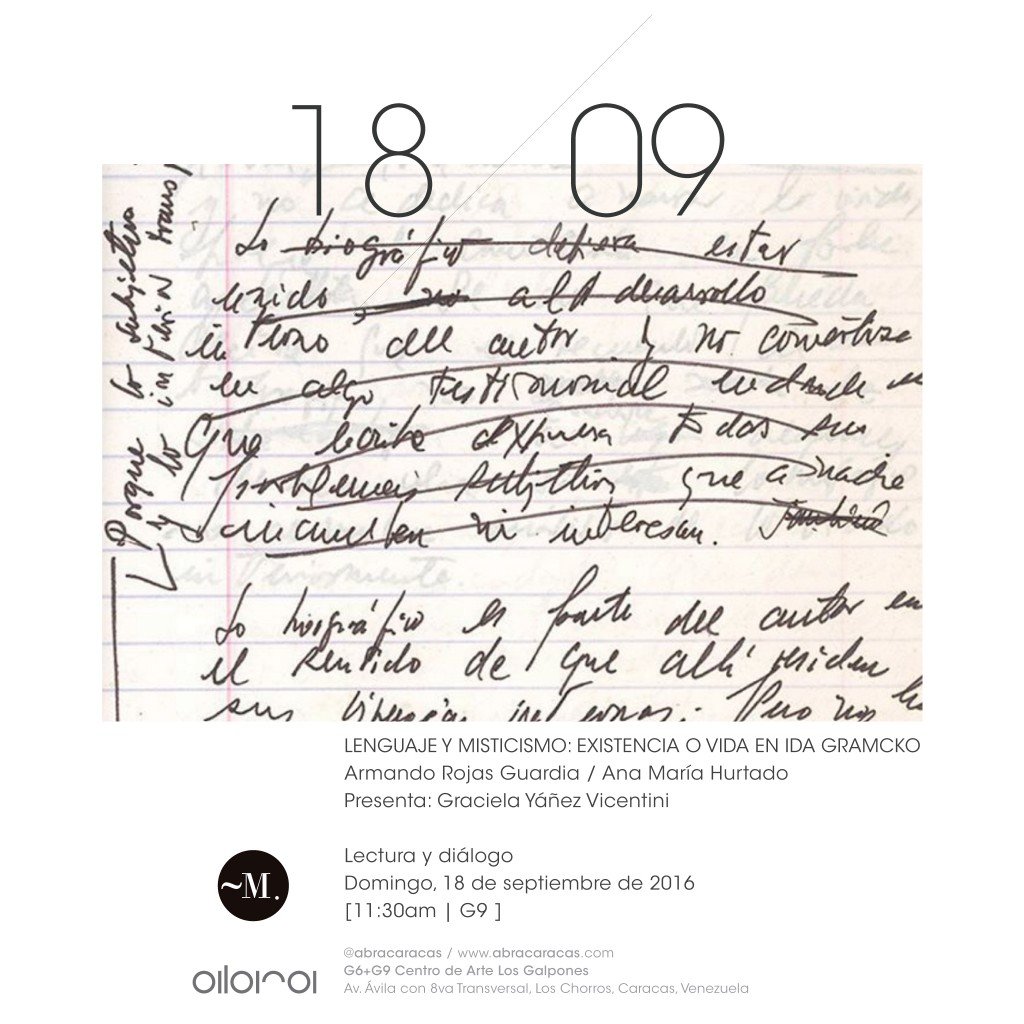 18 09
Lo biográfico debiera estar
unido al desarrollo
interno del autor y no convertirse
en algo testimonial en
Que todos sus
problemas subjetivos que a nadie
incumben ni interesan. También
Porque lo subjetivo
y lo
Lo biográfico es parte del autor en
el sentido de que allí residen
sus internas. Pero nos
LENGUAJE Y MISTICISMO: EXISTENCIA O VIDA EN IDA GRAMCKO
Armando Rojas Guardia / Ana María Hurtado
Presenta: Graciela Yáñez Vicentini
~M.
Lectura y diálogo
Domingo, 18 de septiembre de 2016
[11:30am | G9 ]
@abracaracas / www.abracaracas.com
G6+G9 Centro de Arte Los Galpones
Av. Ávila con 8va Transversal, Los Chorros, Caracas, Venezuela